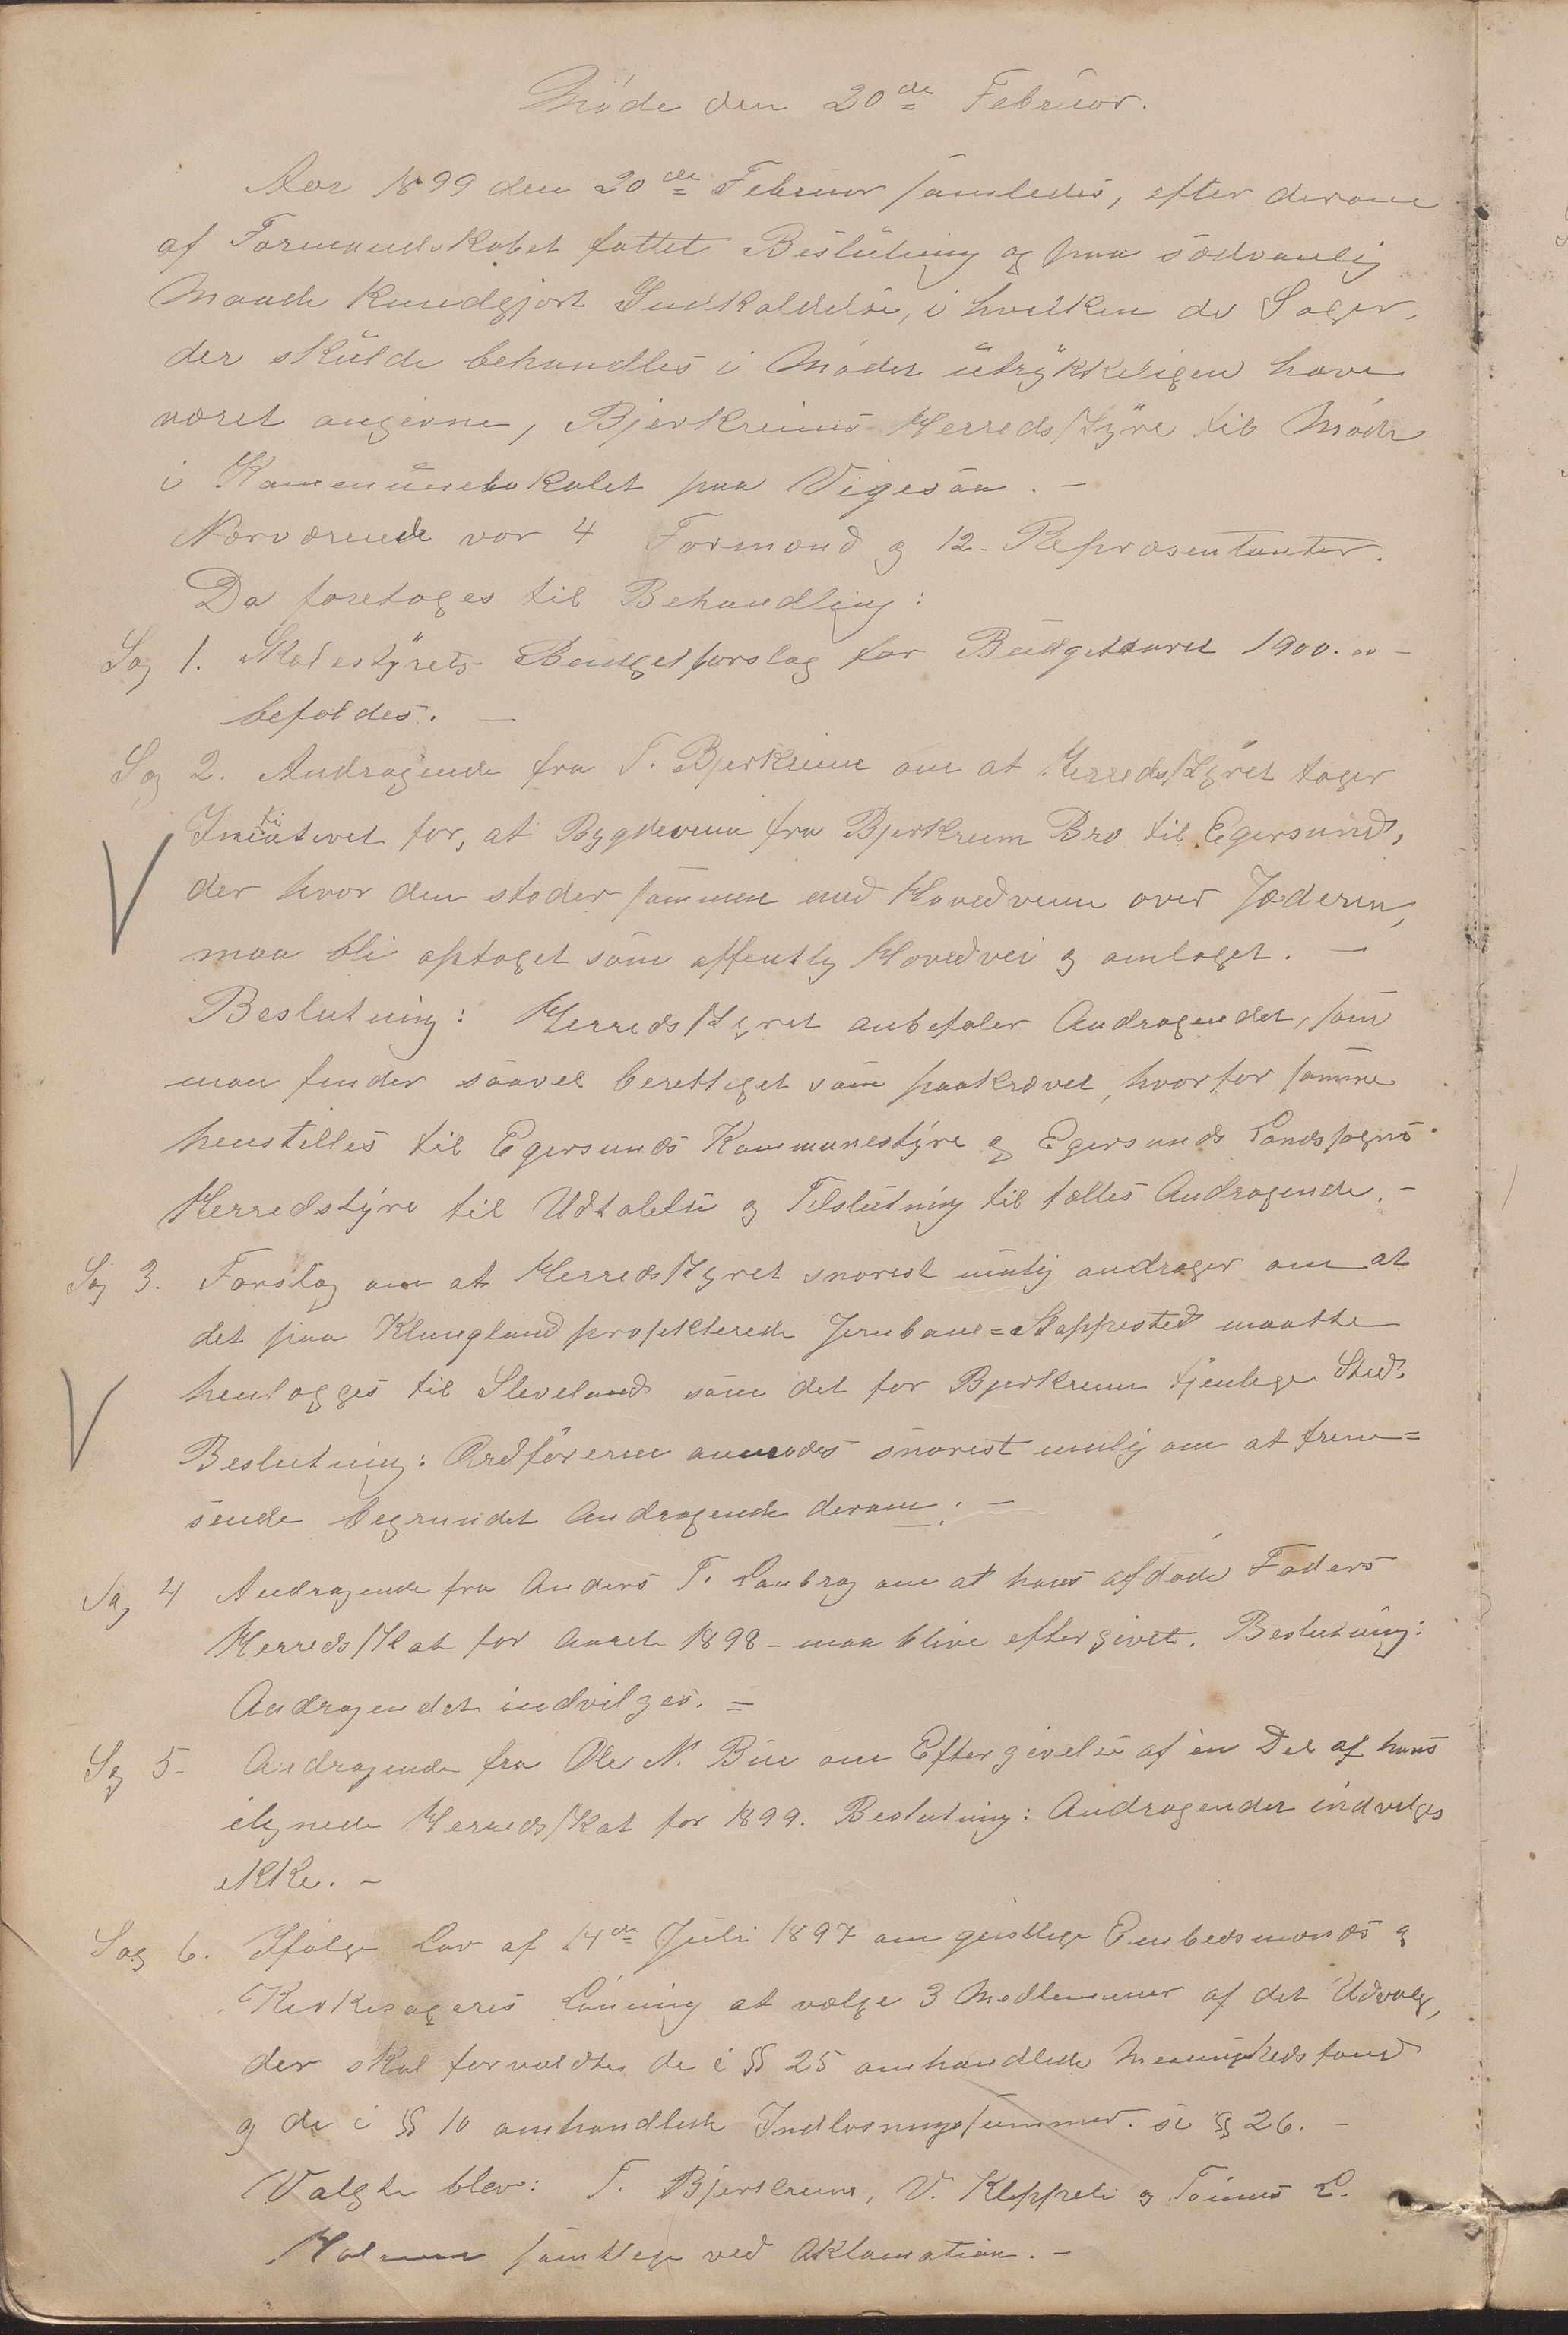 Møde den 20de Februar.
Aar 1899 den 20de Februar samledes, efter derom
af Formandskabet fattet Beslutning og paa sedvanlig
Maade kundgjort Indkaldelse, i hvilken de Sager,
der skulde behandles i Mødet utrykkeligen have
været angivne, Bjerkreims Herredsstyre til Møde
i Kommunelokalet paa Vigesaa. -
Nærværende var 4 Formænd og 12 Repræsentanter.
Da foretoges til Behandling:
Sag 1. Skolestyrets Budgetforslag for Budgetaaret 1900. -
befoldes. -
Sag 2. Andragende fra T. Bjerkreim om at Herredsstyret tager
Initiativet for, at Bygdeveien fra Bjerkreim Bro til Egersund,
der hvor den støder sammen med Hovedveien over Jæderen,
maa bli optaget som offentlig Hovedvei og omlaget. -
Beslutning: Herredsstyret anbefaler Andragendet, som
man finder saavel berettiget som paakrævet, hvorfor samme
henstilles til Egersunds Kommunestyre og Egersunds Landsogns
Herredstyre til Udtalelse og Tilslutning til fælles Andragende. -
Sag 3. Forslag om at Herredsstyret snarest mulig andrager om at
det paa Klungland projekterede Jernbane=Stoppested maatte
henlægges til Sleveland som det for Bjerkreim tjenlige Sted.
Beslutning: Ordføreren anmodes snarest mulig om at frem=
sende begrundet Andragende derom. -
Sag 4 Andragende fra Anders T. om at hans afdøde Faders
Herredsskat for Aaret 1898 - maa blive eftergivet. Beslutning:
Andragendet indvilges. =
Sag 5- Andragende fra Ole N. Bue om Eftergivelse af en Del af hans
ilignede Herredsskat for 1899. Beslutning: Andragendet indvilges
ikke. -
Sag 6. Ifølge Lov af 14de Juli 1897 om geistlige Embedsmænds og
Kirkesangeres Lønning at vælge 3 Medlemmer af det Udvalg,
der skal forvalte de i §§ 25 omhandlede Menighedsfond
og de i §§ 10 omhandlede Indløsningssummer. se §§ 26. -
Valgte blev: T. Bjerkreim, V. Kleppeli og Tønnes L.
samtlige ved Aklamation. -